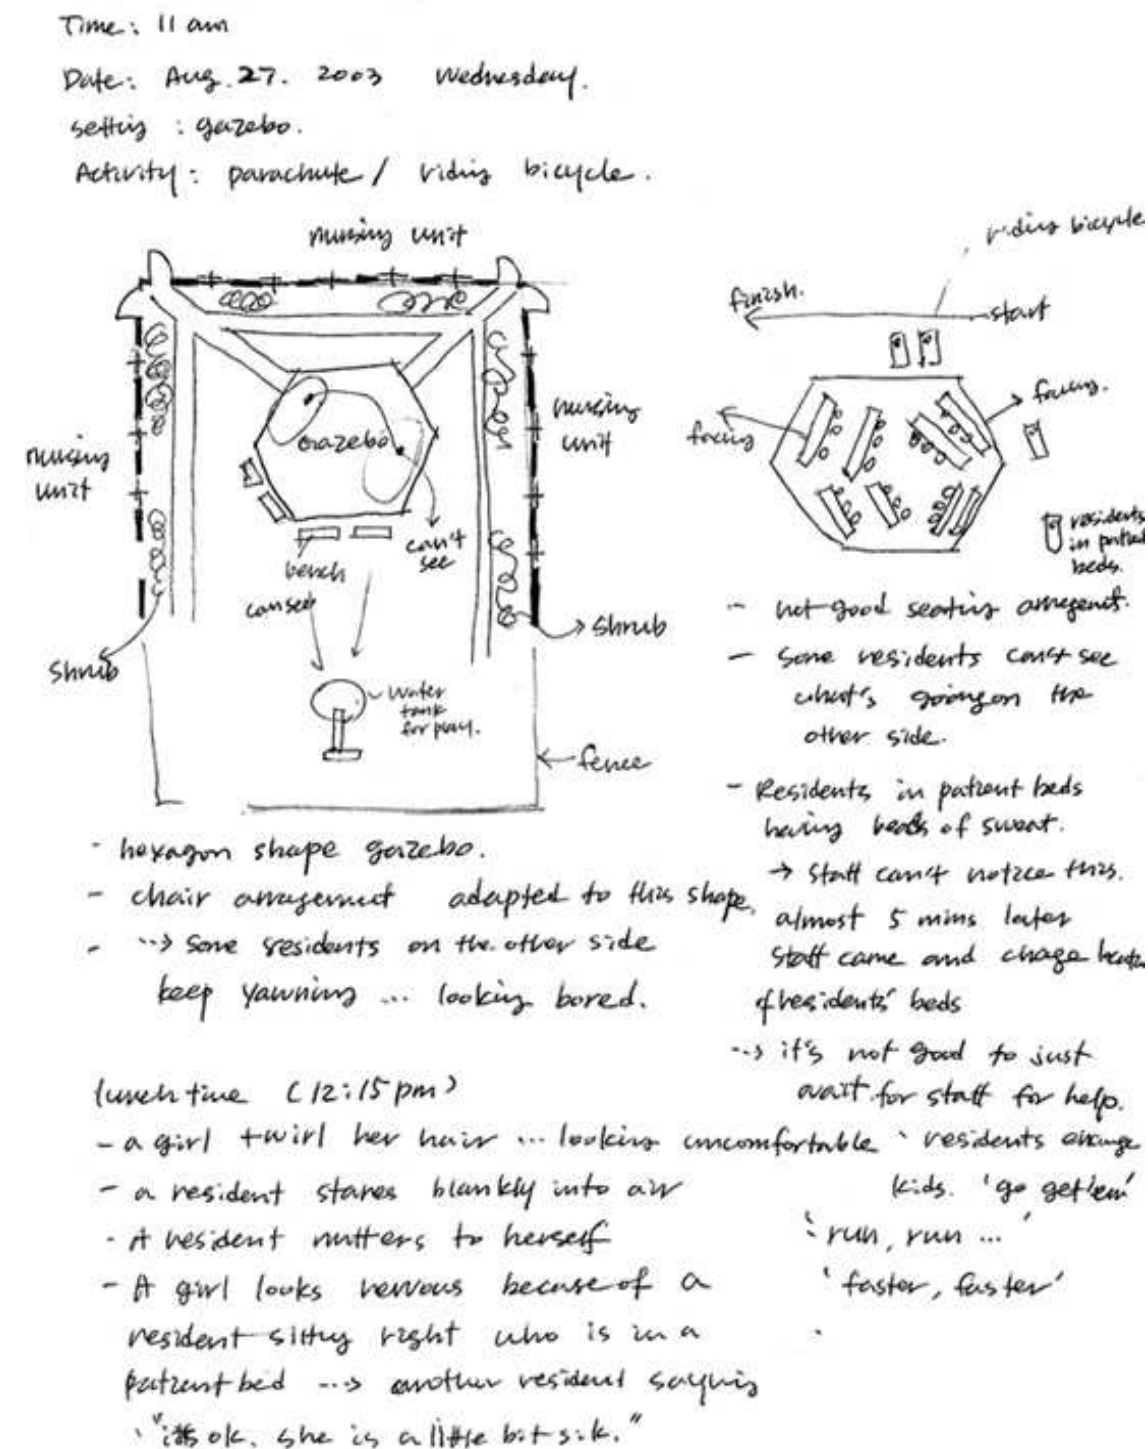 Time: 11 am
Date: Aug. 27. 2003 Wednesday.
setting : gazebo.
Activity: parachute / riding bicycle.
nursing unit
nursing unit
nursing unit
Gazebo
bench
can see
can't see
Shrub
Shrub
water tank for play.
fence
riding bicycle
finish.
start
facing
facing.
residents
in patient
beds.
- hexagon shape gazebo.
- chair arragement adapted to this shape.
- --> Some residents on the other side
keep yawning ... looking bored.
- not good seating
- Some residents can't see
what's going on the
other side.
- Residents in patient beds
having beads of sweat.
→ Staff can't notice this.
almost 5 mins later
Staff came and chage
of residents' beds
--> it's not good to just
wait for staff for help.
residents
kids. 'go get'em'
'run, run ...'
'faster, faster'
lunch time (12:15 pm)
- a girl twirl her hair ... looking uncomfortable
- a resident stares blankly into air
- A resident mutters to herself
- A girl looks nervous because of a
resident sitting right who is in a
patient bed --> another resident saying
"it's ok. she is a little bit sick."